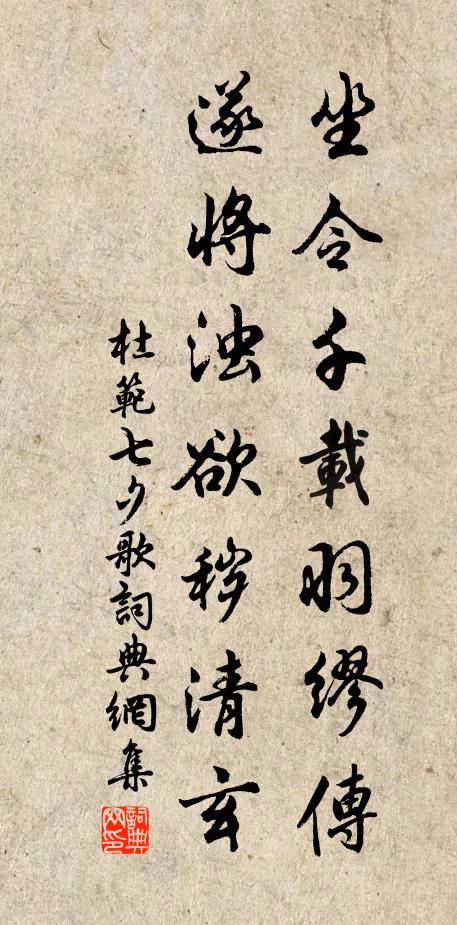 坐令千載繆傳
遂將浊欲秽清玄
杜範七夕歌詞典網集
詞典网印